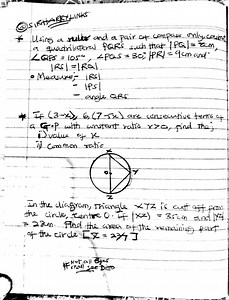 * Using a ruler and a pair of compass only, construct
a quadrilateral PQRS such that |PQ| = 8cm,
∠QPS = 105°, ∠PQS = 30°, |PR| = 9cm and
|RS| = |RQ|
• Measure:- |RS|
- |PS|
- angle QRS
* If (3-x), 6, (7-5x) are consecutive terms of
a G.P with constant ratio r>0, find the;
i) value of x
ii) Common ratio.
O
Z
Y
In the diagram, triangle XYZ is cut off from
the circle, centre O. If |XZ| = 35cm and |YZ|
= 28cm. Find the area of the remaining part
of the circle [π = 22/7]